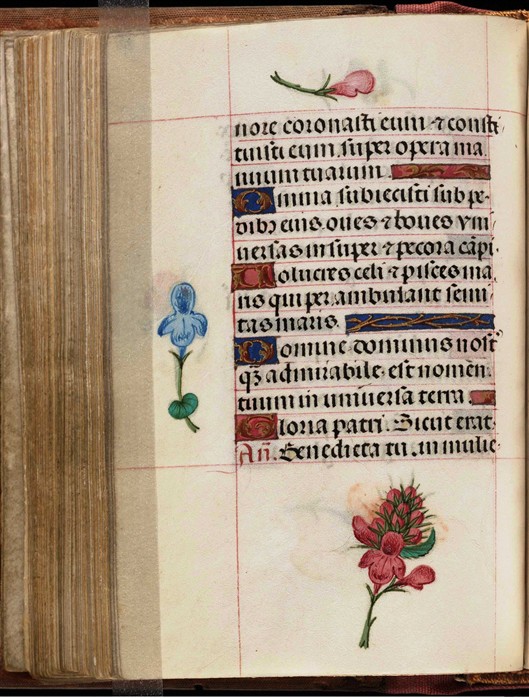 nore coronasti eum ⁊ consti
tuisti eum super opera ma
nuum tuarum.
Omnia subiecisti sub pe
dibꝫ eius oues ⁊ boues vni
uersas in super ⁊ pecora cāpi.
Volucres celi ⁊ pisces ma
ris qui per ambulant semi
tas maris.
Domine dominus nost̄
qꝫ admirabile est nomen
tuum in uniuersa terra.
Gloria patri. Sicut erat.
Añ. Benedicta tu. in mulie